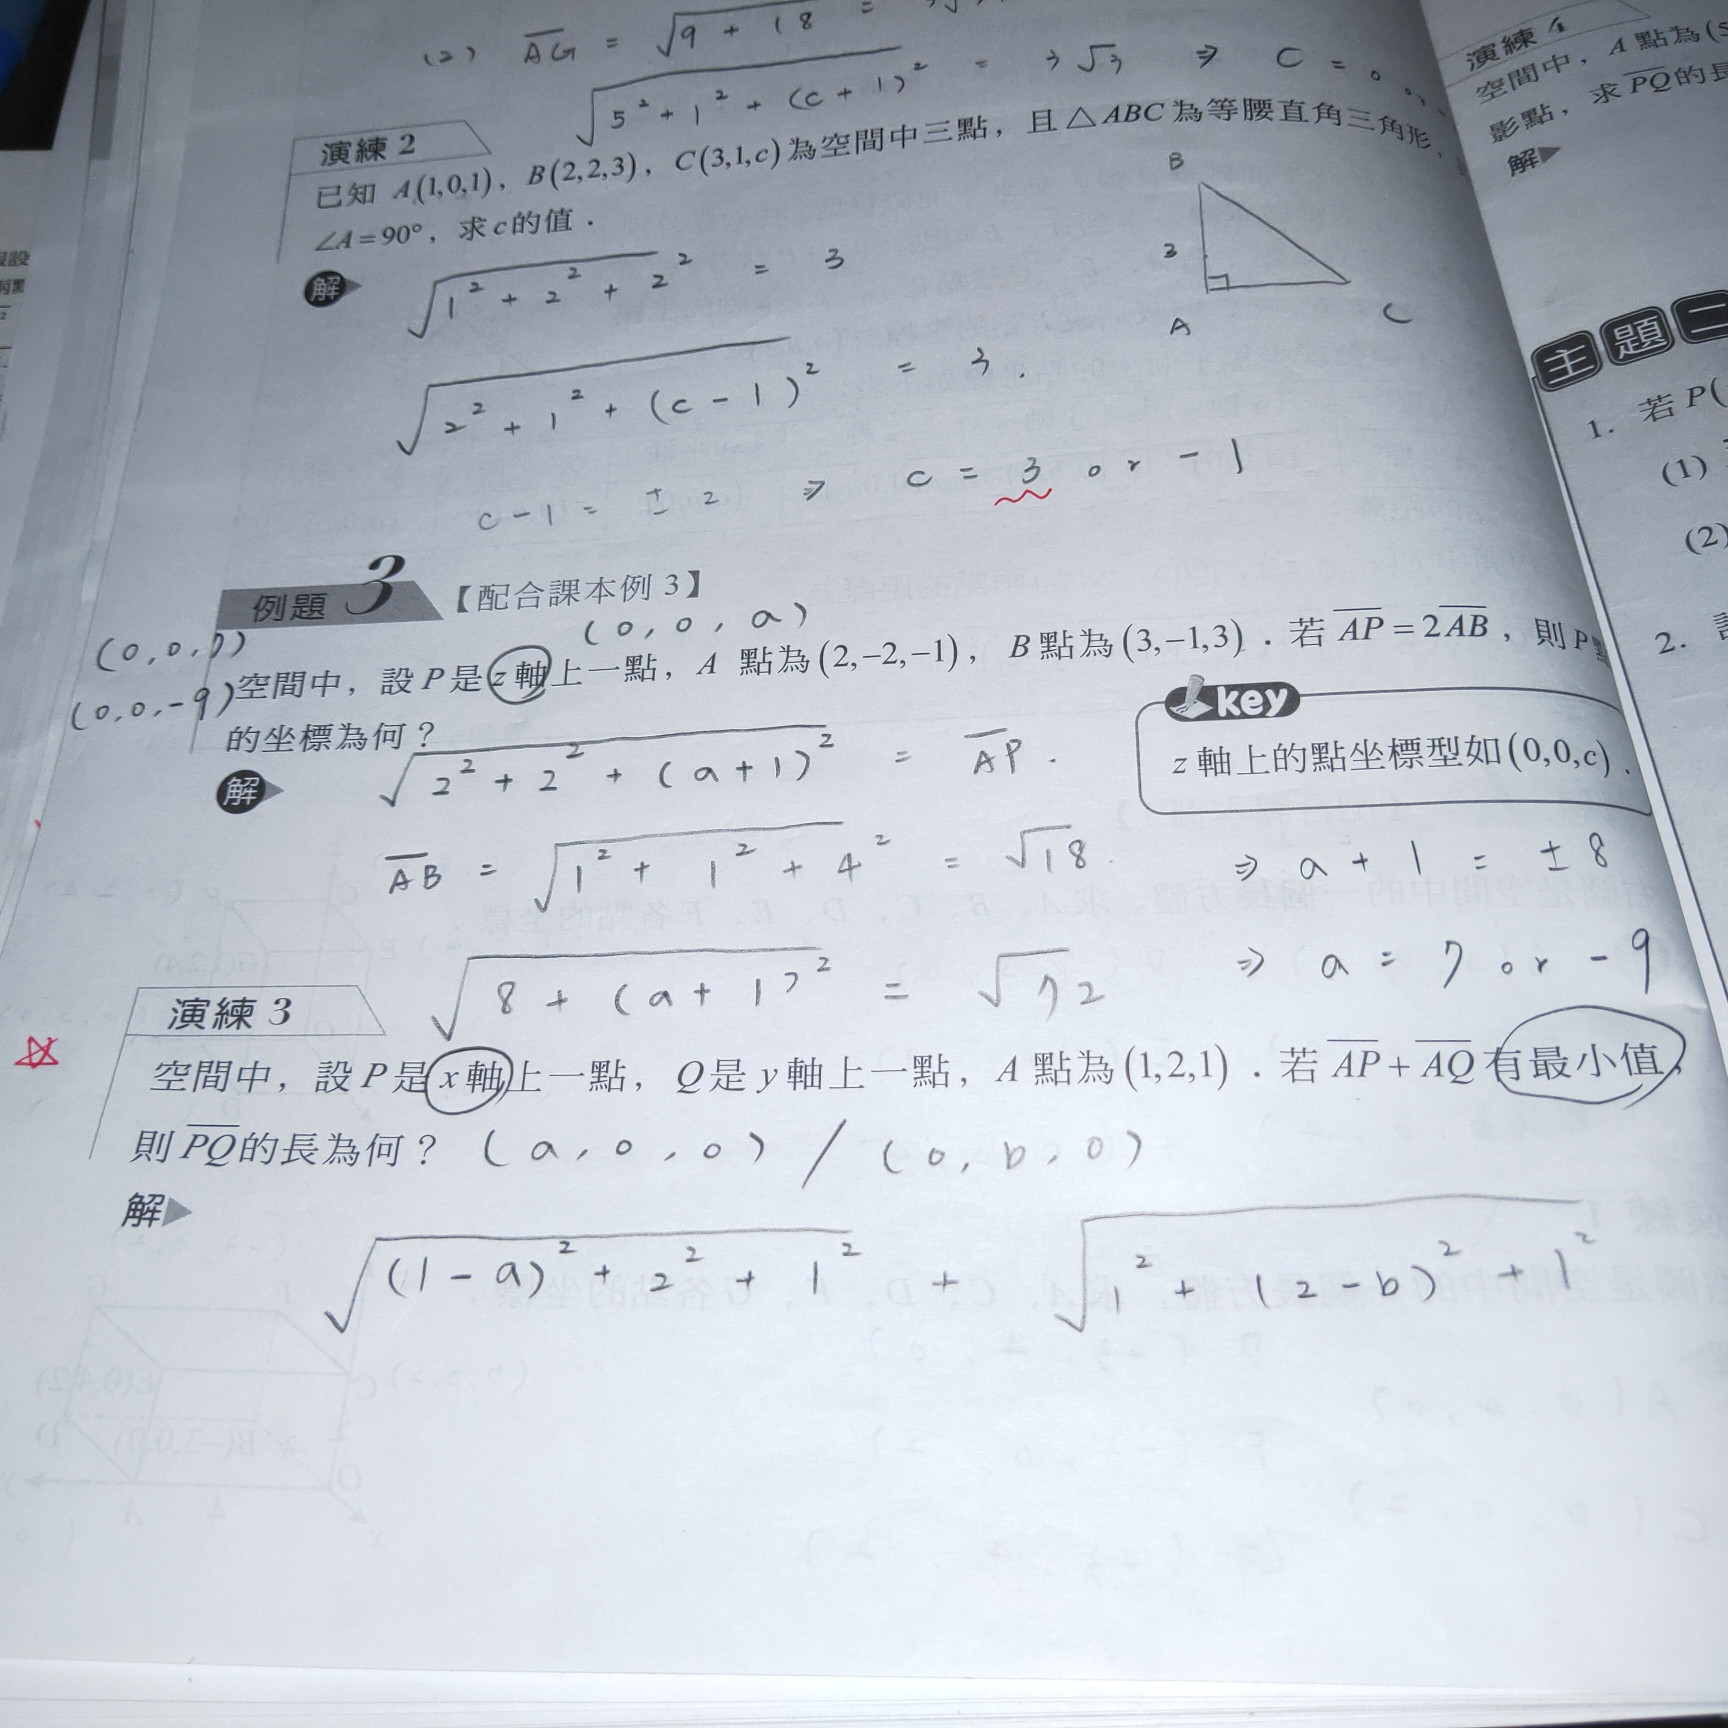 (2) AG = √9 + 18 =
√5² + 1² + (c + 1)² = 3√3 ⇒ C = 0
演練 2
已知 A(1,0,1), B(2,2,3), C(3,1,c) 為空間中三點, 且 △ABC 為等腰直角三角形,
∠A = 90°, 求 c 的值.
B
3
A
C
解
√1² + 2² + 2² = 3
√2² + 1² + (c - 1)² = 3.
c - 1 = ± 2 ⇒ c = 3 or -1
例題 3 【配合課本例 3】
(0, 0, a)
(0,0,7)
(0,0,-9)
空間中, 設 P 是 z 軸上一點, A 點為 (2,-2,-1), B 點為 (3,-1,3). 若 AP = 2AB, 則 P 點
的坐標為何?
key
z 軸上的點坐標型如 (0,0,c).
解
√2² + 2² + (a + 1)² = AP.
AB = √1² + 1² + 4² = √18
⇒ a + 1 = ± 8
√8 + (a + 1)² = √72
⇒ a = 7 or -9
演練 3
空間中, 設 P 是 x 軸上一點, Q 是 y 軸上一點, A 點為 (1,2,1). 若 AP + AQ 有最小值,
則 PQ 的長為何? (a, 0, 0) / (0, b, 0)
解
√(1 - a)² + 2² + 1² + √1² + (2 - b)² + 1²
演練 4
空間中, A 點為 (5
影點, 求 PQ 的長
解
主題二
1. 若 P(
(1)
(2)
2.